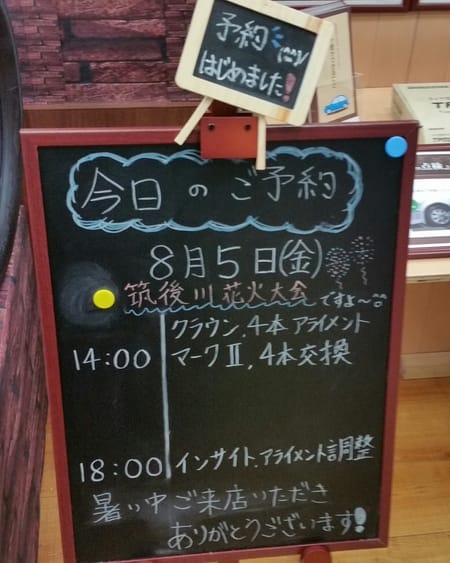 予約
はじめました!
今日のご予約
8月5日(金)
筑後川花火大会ですよ~
クラウン.4本アライメント
14:00 マークⅡ.4本交換
18:00 インサイト.アライメント調整
暑い中ご来店いただき
ありがとうございます!